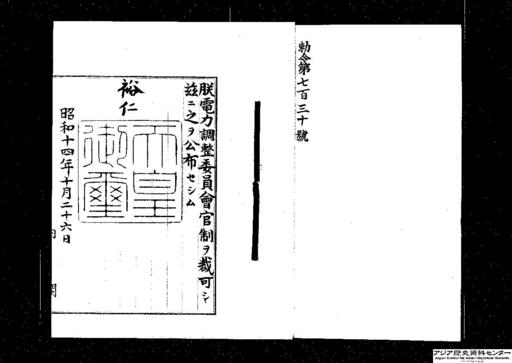 勅令第七百三十號
朕電力調整委員會官制ヲ裁可シ
茲ニ之ヲ公布セシム
裕仁
天皇
御璽
昭和十四年十月二十六日
内 閣
アジア歴史資料センター
Japan Center for Asian Historical Records